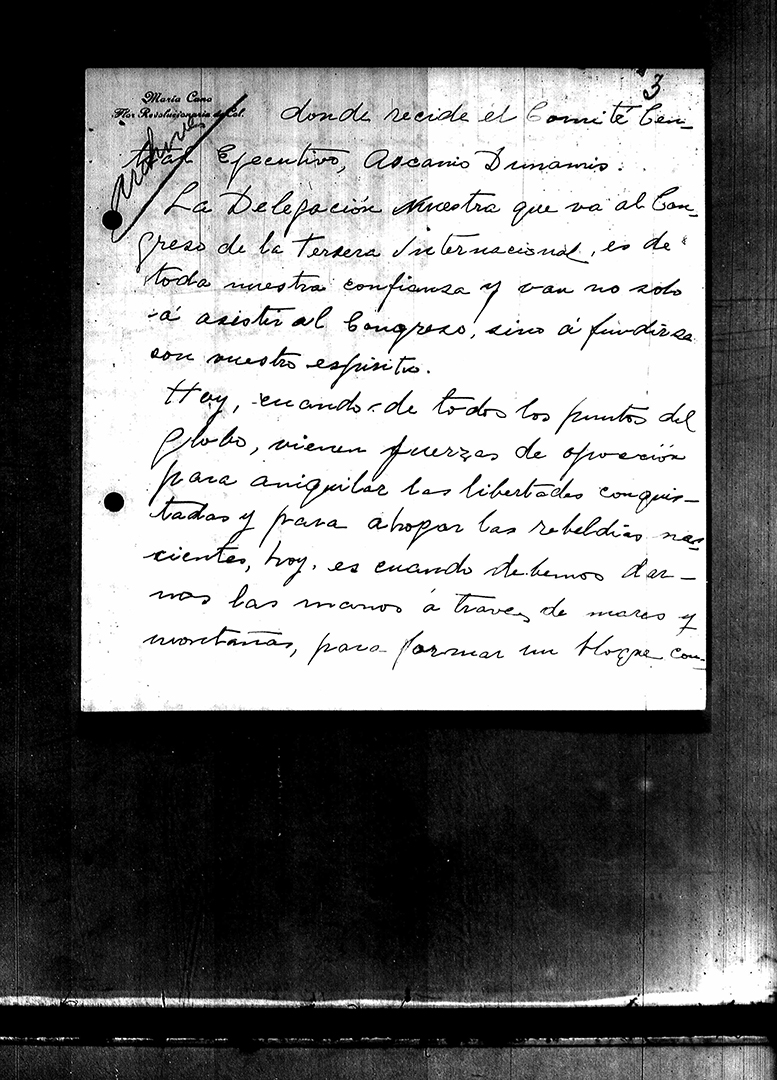 3
María Cano
Flor Revolucionaria de Col.
Archivo
donde recide el Comité Cen-
tral Ejecutivo, Ascanio Dunamis.
La Delegación nuestra que va al Con-
greso de la Tersera Internacional, es de
toda nuestra confianza y van no solo
á asistir al Congreso, sino á fundirse
son vuestro espiritu.
Hoy, cuando de todos los puntos del
globo, vienen fuerzas de oposición
para aniquilar las libertades conquis-
tadas y para ahogar las rebeldías nas
cientes, hoy, es cuando debemos dar-
nos las manos á traves de mares y
montañas, para formar un bloque con-